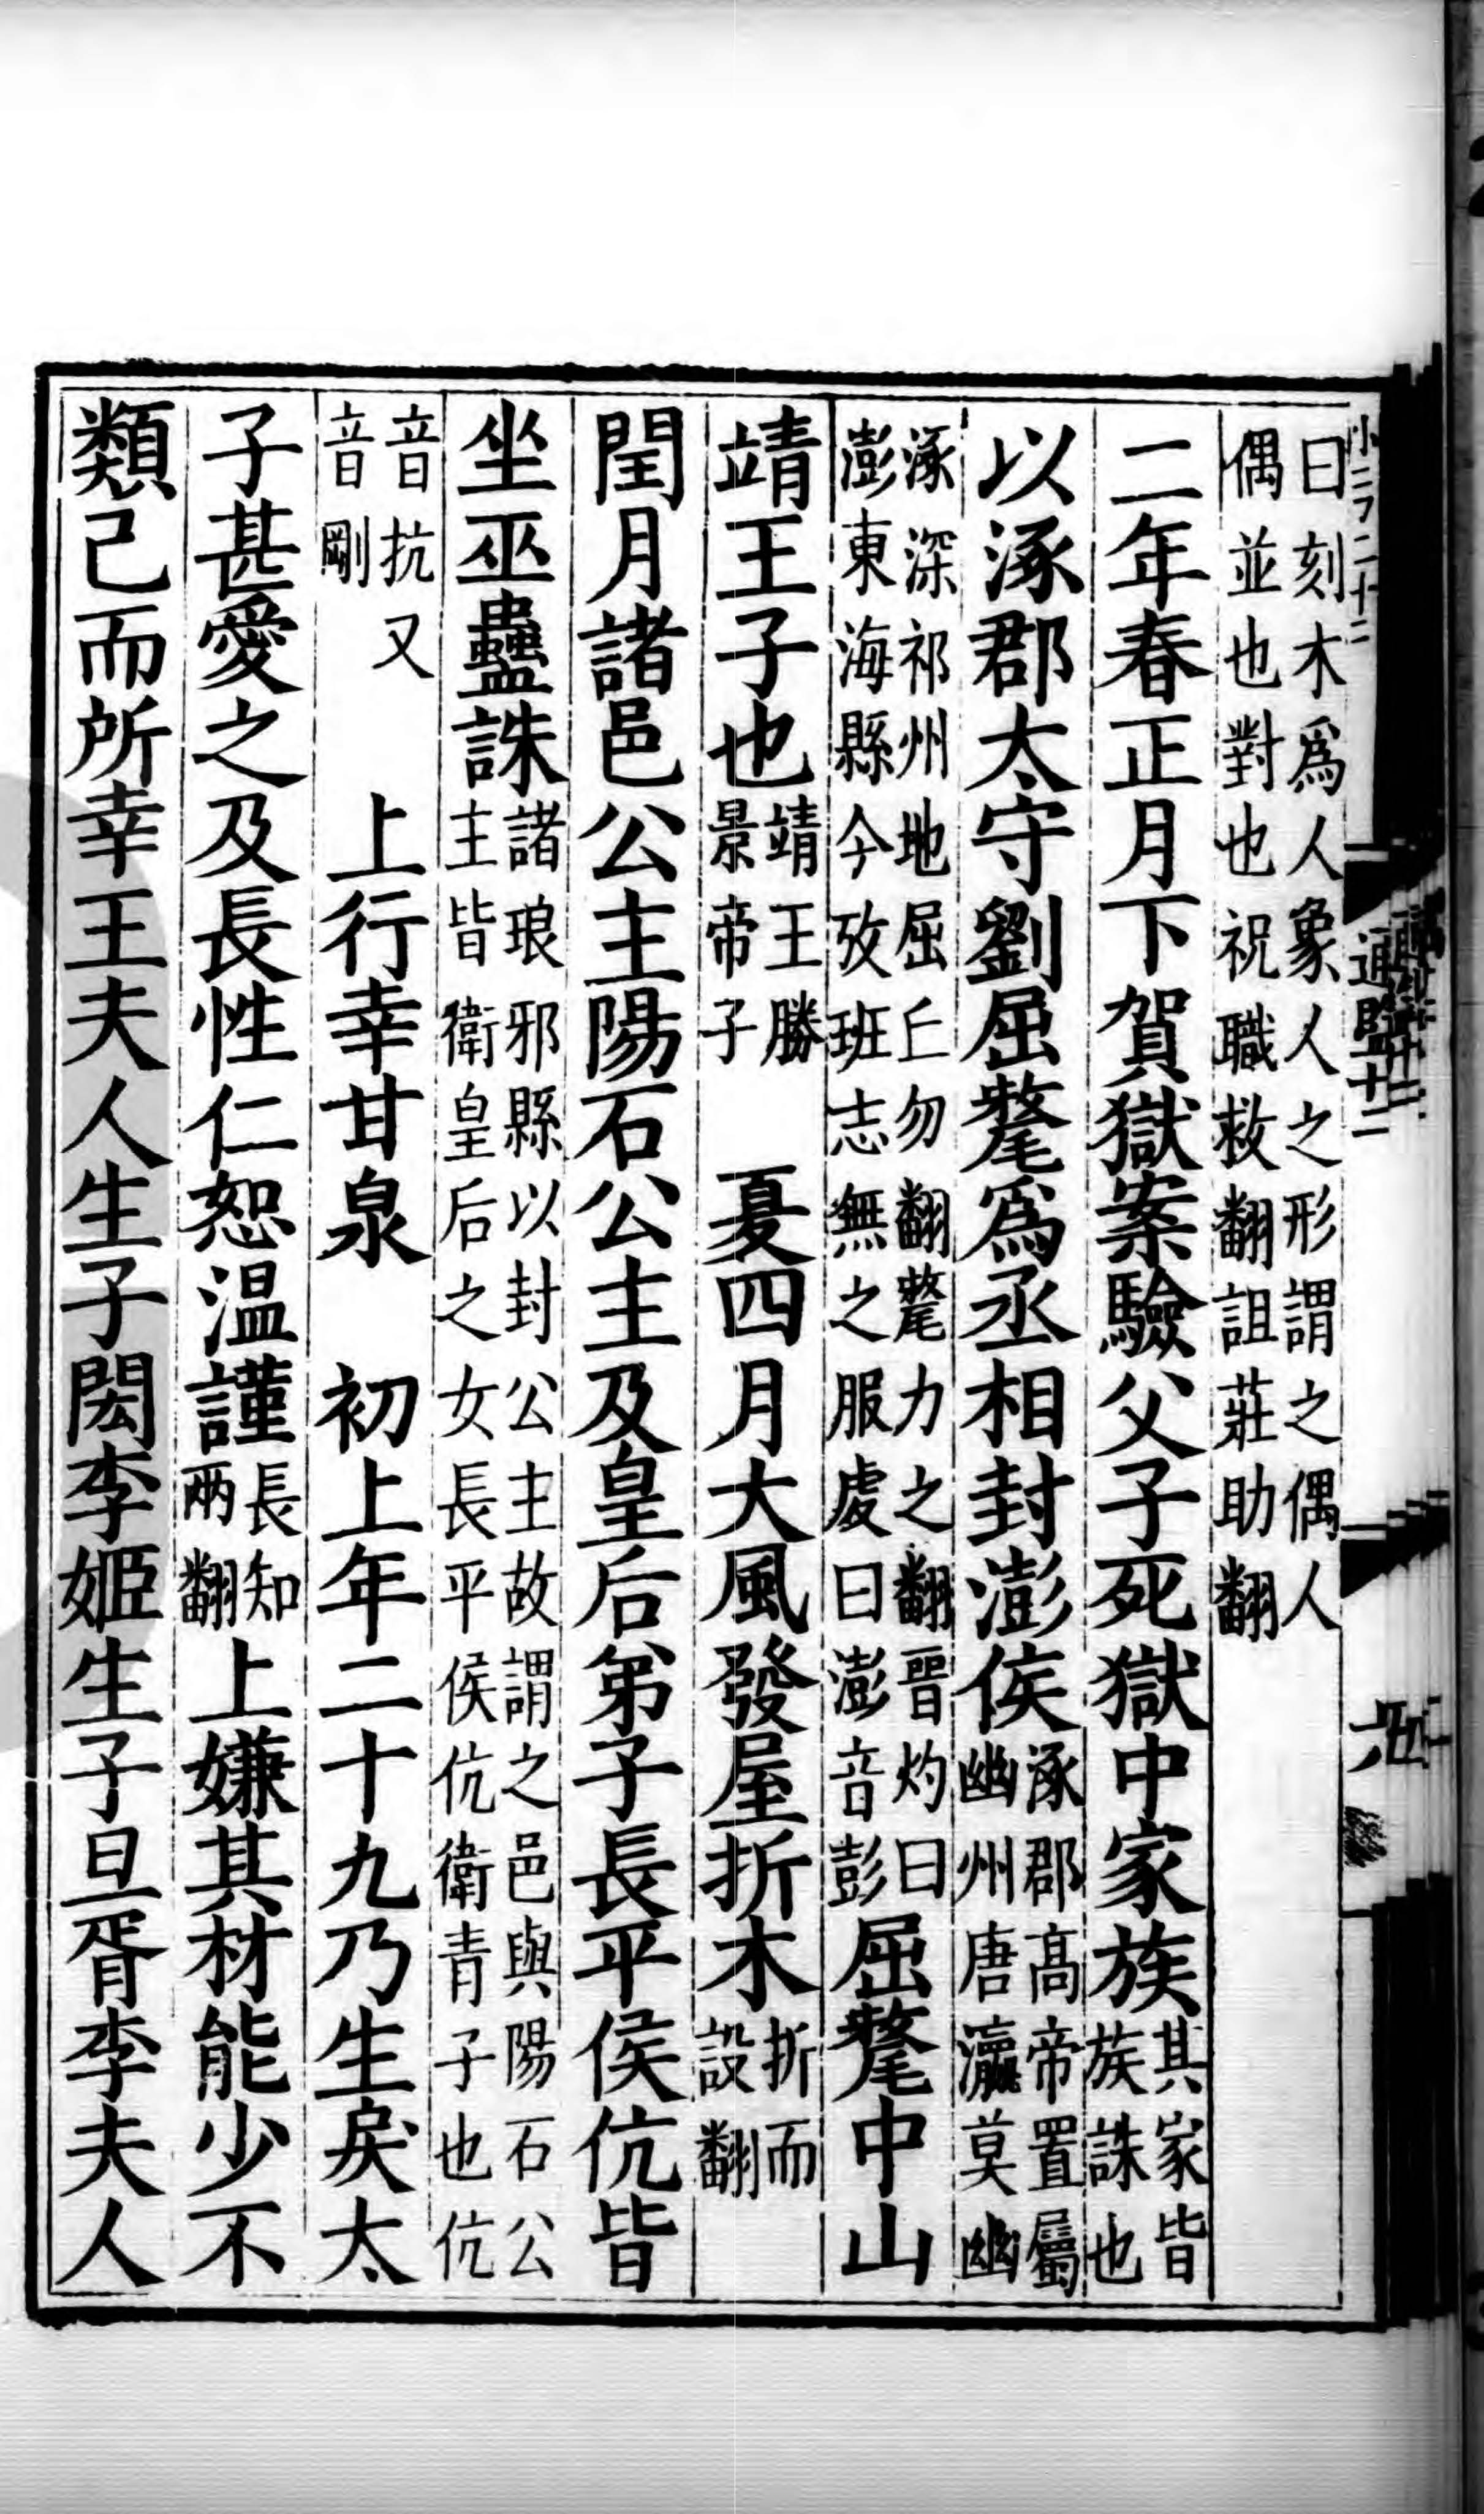 曰刻木爲人象人之形謂之偶人
偶並也對也祝職救翻詛莊助翻
二年春正月下賀獄案驗父子死獄中家族其家皆族誅也
以涿郡太守劉屈氂爲丞相封澎侯涿郡高帝置屬幽州唐瀛莫幽
涿深祁州地屈丘勿翻氂力之翻晉灼曰澎東海縣今攷班志無之服虔曰澎音彭屈氂中山
靖王子也靖王勝景帝子 夏四月大風發屋折木折而設翻
閏月諸邑公主陽石公主及皇后弟子長平侯伉皆
坐巫蠱誅諸琅邪縣以封公主故謂之邑與陽石公主皆衛皇后之女長平侯伉衛青子也伉
音抗又音剛 上行幸甘泉 初上年二十九乃生戾太
子甚愛之及長性仁恕溫謹長知兩翻上嫌其材能少不
類己而所幸王夫人生子閎李姬生子旦胥李夫人
通鑑二十二